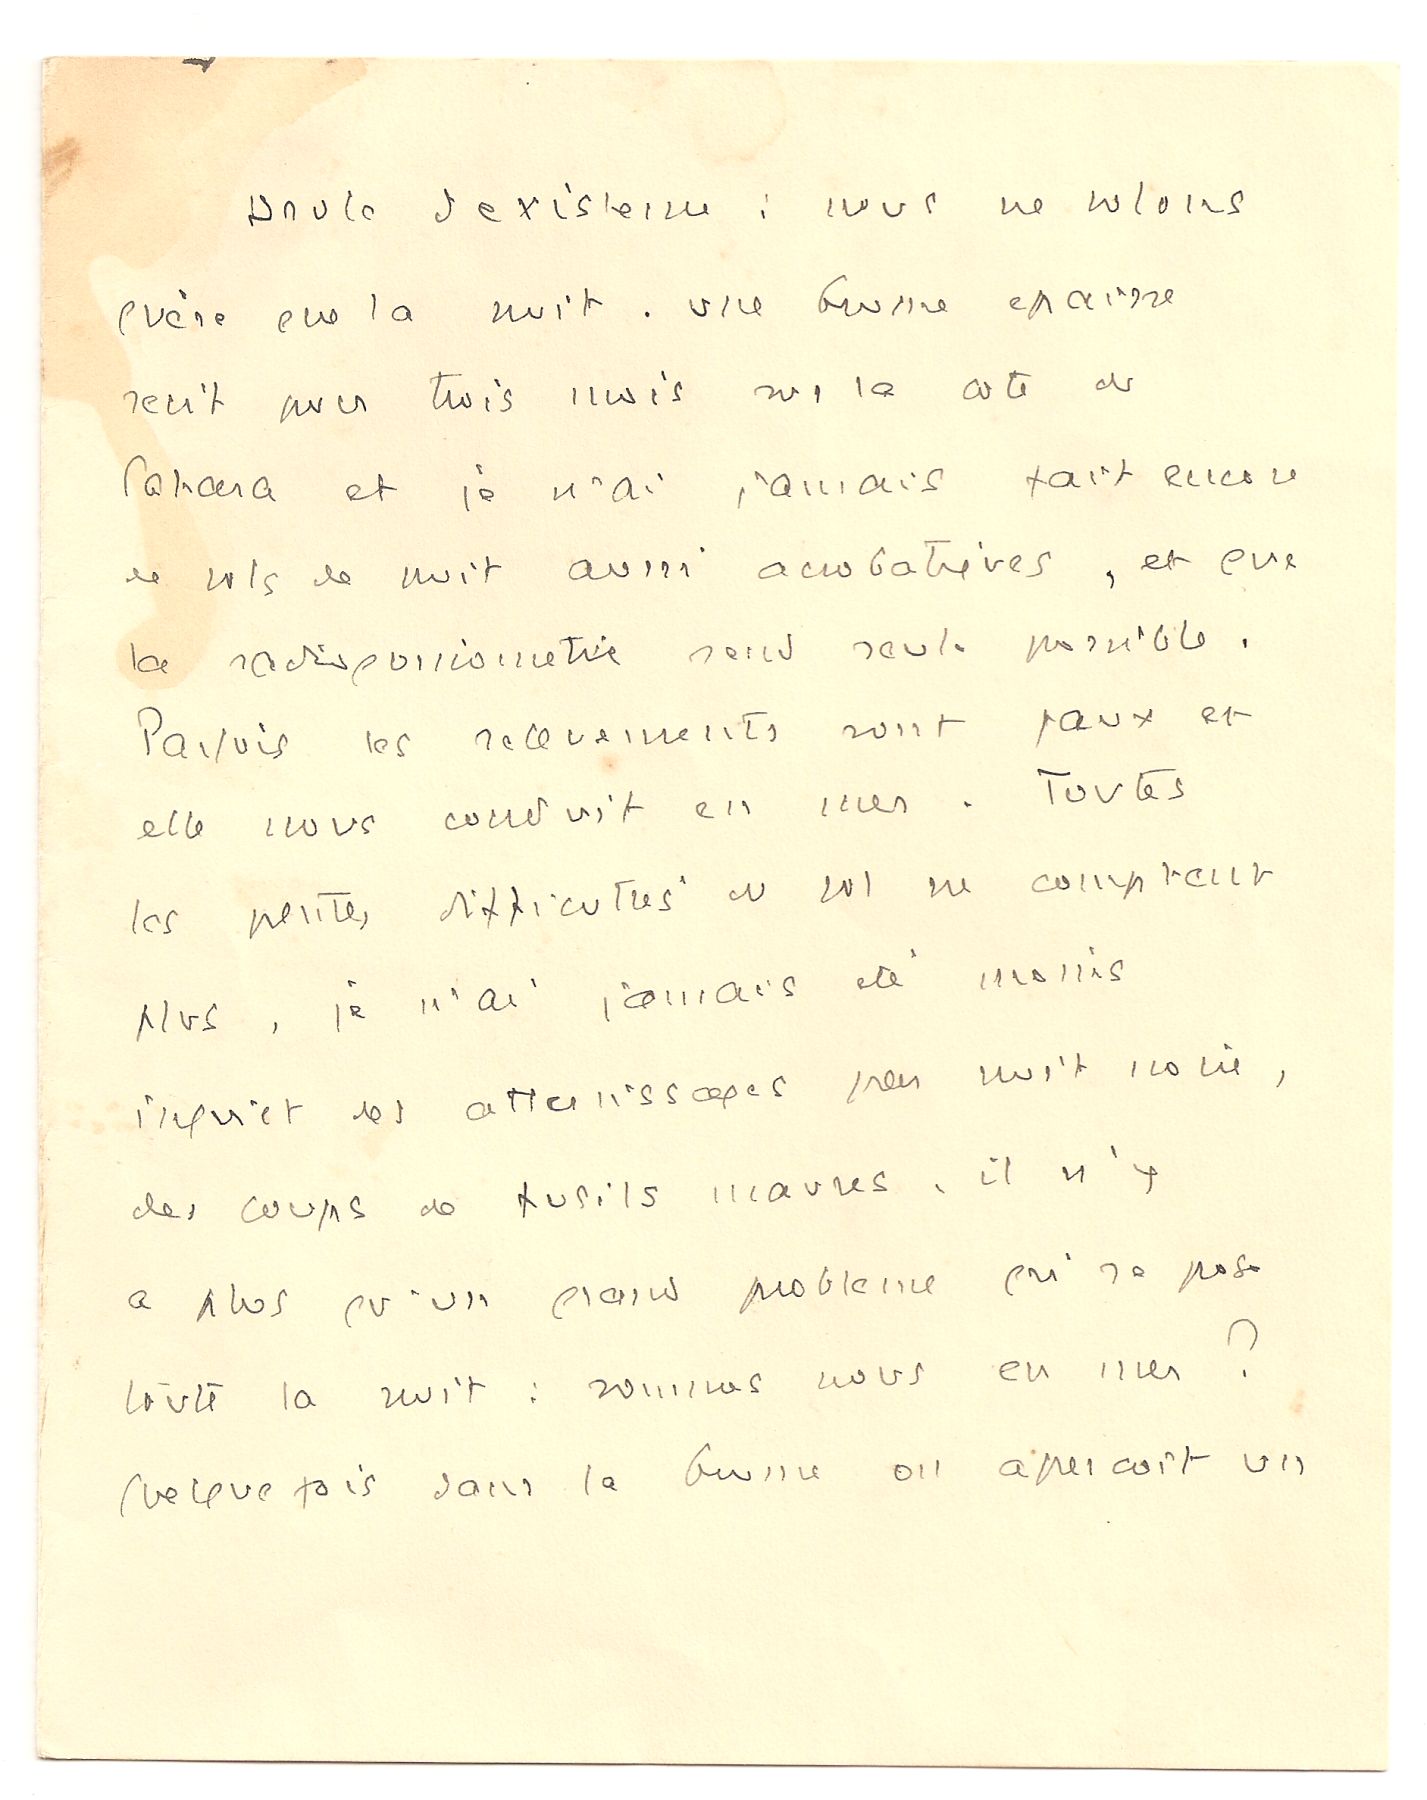 Drole d'existence : nous ne volons
guère que la nuit. une brume epaisse
sevit pour trois mois sur la cote du
Sahara et je n'ai jamais fait encore
de vols de nuit aussi acrobatiques, et que
la radiogoniometrie rend seule possible.
Parfois les relevements sont faux et
elle nous conduit en mer. Toutes
les petites difficultés du vol ne comptent
plus, je n'ai jamais eté moins
inquiet des atterrissages par nuit noire,
des coups de fusils maures. il n'y
a plus qu'un grand probleme qui se pose
toute la nuit : sommes nous en mer ?
Quelque fois dans la brume on apercoit un